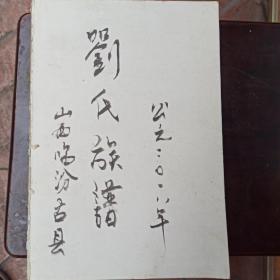 公元二〇一八年
劉氏族譜
山西临汾古县